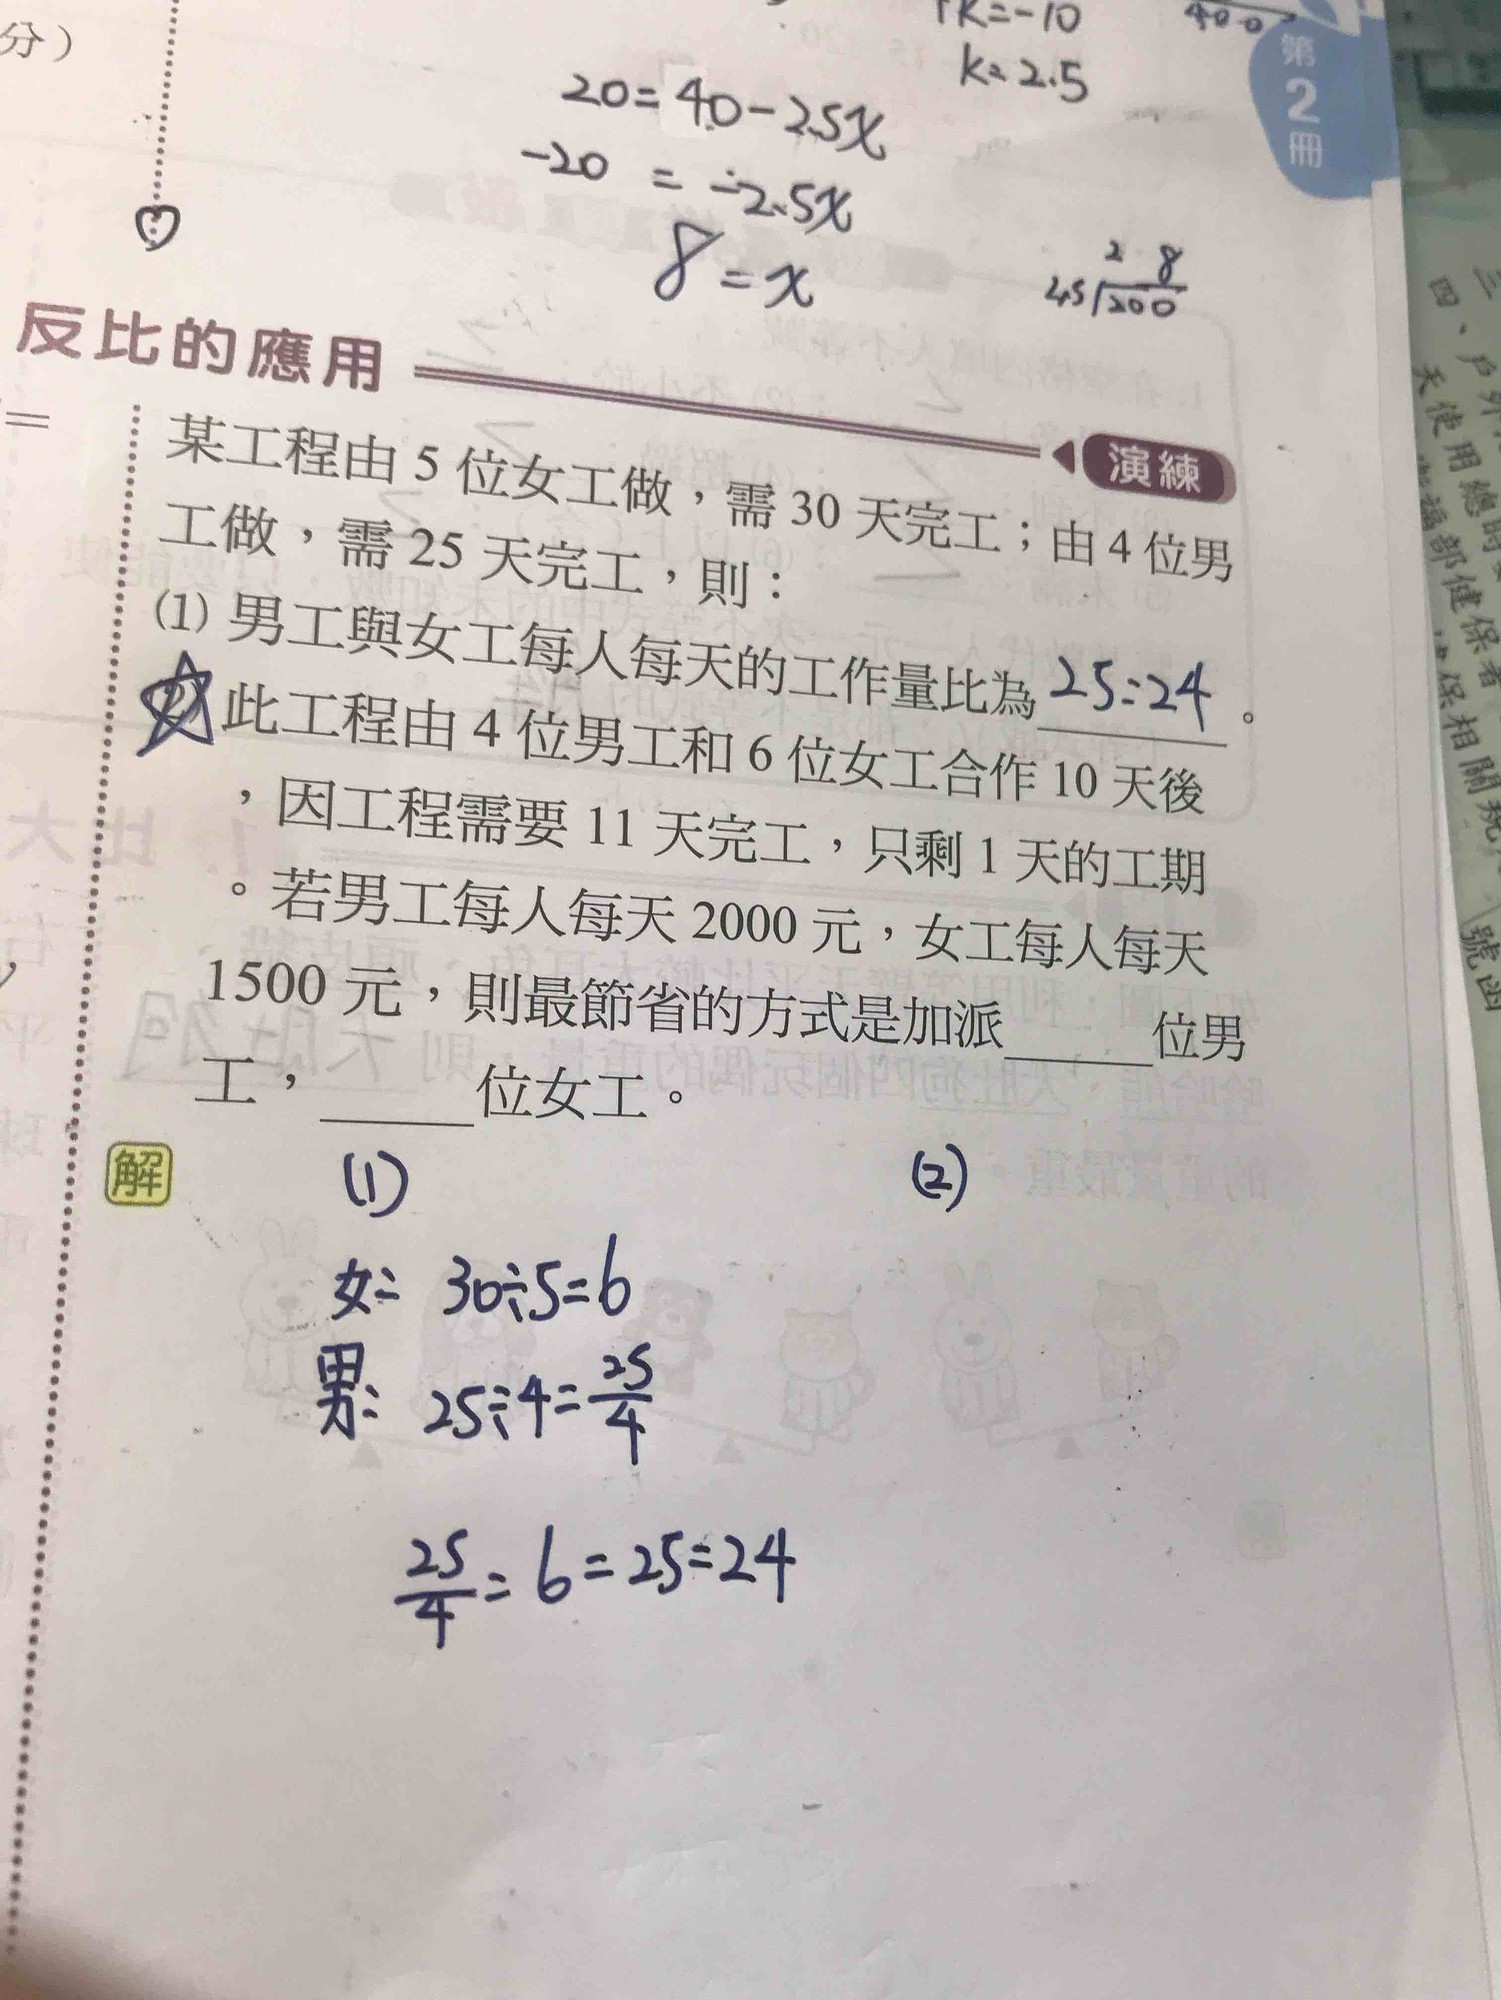 分）
k=-10
400
第
2
冊
k=2.5
20=40-2.5x
-20 = -2.5x
8=x
2 8
45 200
反比的應用
演練
=
某工程由 5 位女工做，需 30 天完工；由 4 位男
工做，需 25 天完工，則：
(1) 男工與女工每人每天的工作量比為 25:24 。
(2) 此工程由 4 位男工和 6 位女工合作 10 天後
，因工程需要 11 天完工，只剩 1 天的工期
。若男工每人每天 2000 元，女工每人每天
1500 元，則最節省的方式是加派 位男
工， 位女工。
解
(1)
(2)
女: 30÷5=6
男: 25÷4=25/4
25/4:6=25:24
三
四、戶外
天使用總時
部健保署
健保相關規
號函